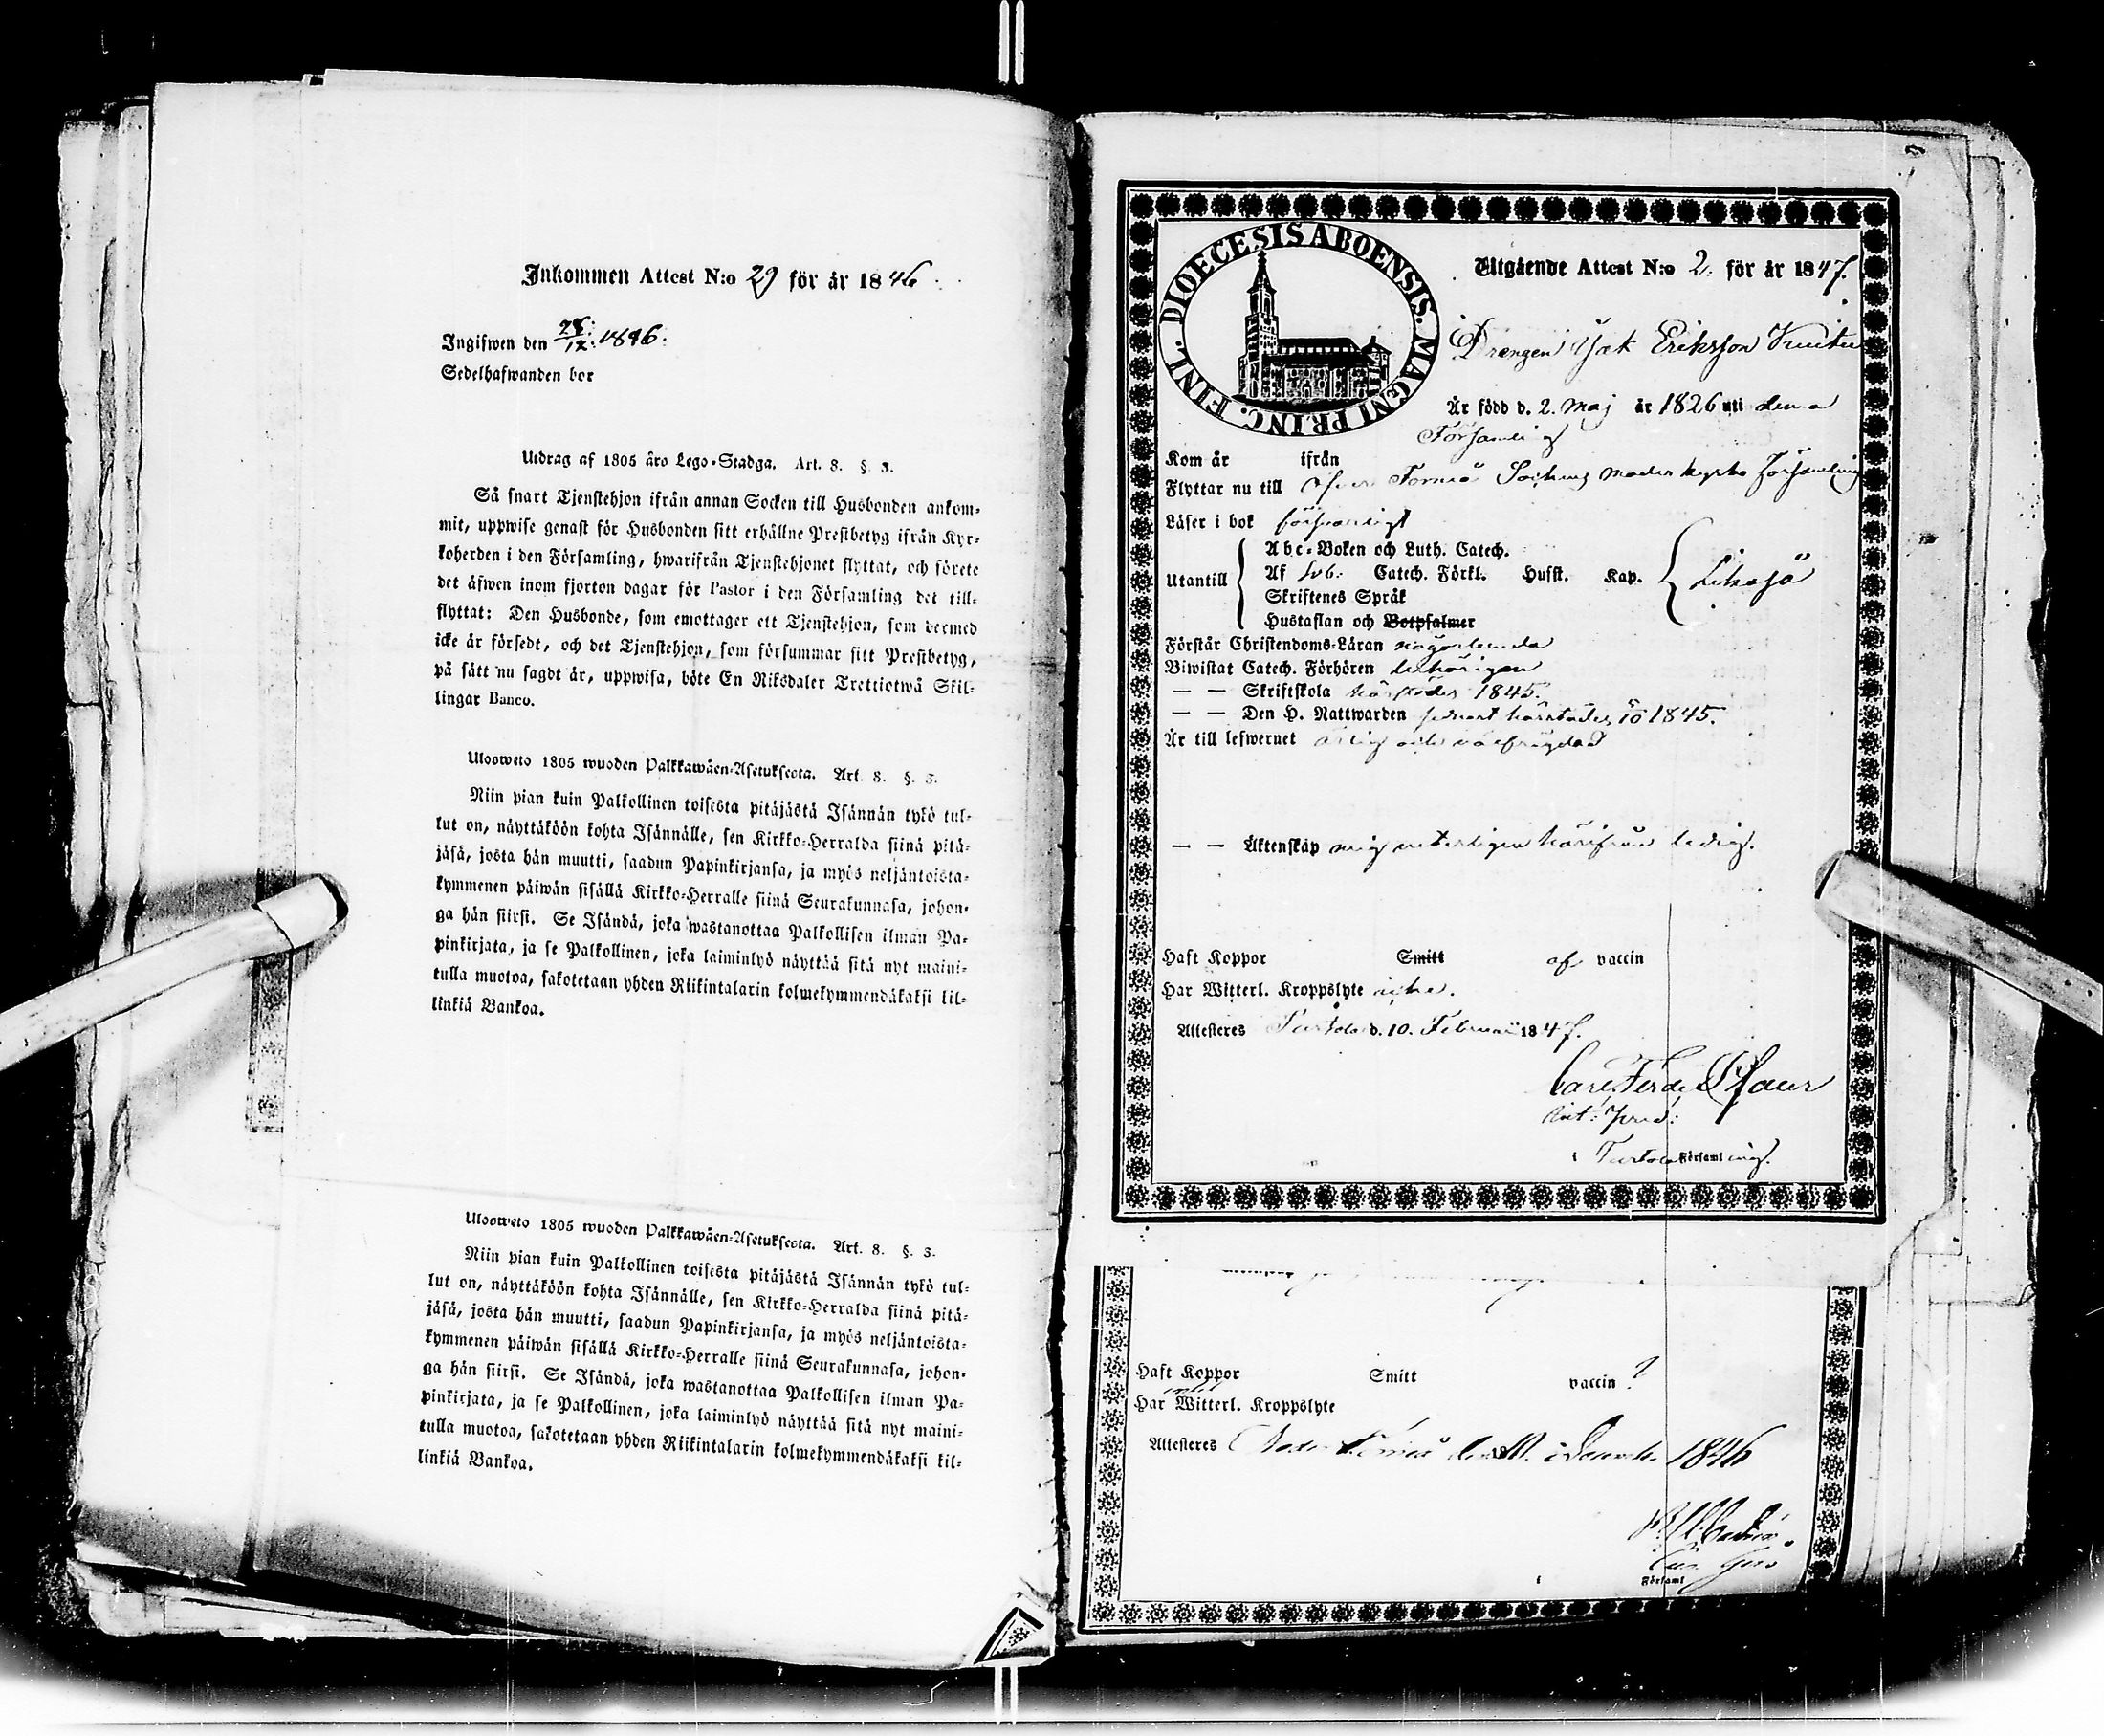 Inkommen Attest N:o 29 för år 1846.
Ingifwen den 28/12. 1846.
Sedelhafwanden bor
Utdrag af 1805 års Lego-Stadga. Art. 8. §. 3.
Så snart Tjenstehjon ifrån annan Socken till Husbonden ankom-
mit, uppwise genast för Husbonden sitt erhållne Prestbetyg ifrån Kyr-
koherden i den Församling, hwarifrån Tjenstehjonet flyttat, och förete
det äfwen inom fjorton dagar för Pastor i den Församling det till-
flyttat: Den Husbonde, som emottager ett Tjenstehjon, som dermed
icke är försedt, och det Tjenstehjon, som försummar sitt Prestbetyg,
på sätt nu sagdt är, uppwisa, böte En Riksdaler Trettiotwå Skil-
lingar Banco.
Ulosweto 1805 wuoden Palkkawäen-Asetuksesta. Art. 8. §. 3.
Niin pian kuin Palkollinen toisesta pitäjästä Isännän tykö tul-
lut on, näyttäköön kohta Isännälle, sen Kirkko-Herralda siinä pitä-
jäsä, josta hän muutti, saadun Papinkirjansa, ja myös neljäntoista-
kymmenen päiwän sisällä Kirkko-Herralle siinä Seurakunnasa, johon-
ga hän siirsi. Se Isändä, joka wastanottaa Palkollisen ilman Pa-
pinkirjata, ja se Palkollinen, joka laiminlyö näyttää sitä nyt maini-
tulla muotoa, sakotetaan yhden Riikintalarin kolmekymmendäkaksi kil-
linkiä Bankoa.
Ulosweto 1805 wuoden Palkkawäen-Asetuksesta. Art. 8. §. 3.
Niin pian kuin Palkollinen toisesta pitäjästä Isännän tykö tul-
lut on, näyttäköön kohta Isännälle, sen Kirkko-Herralda siinä pitä-
jäsä, josta hän muutti, saadun Papinkirjansa, ja myös neljäntoista-
kymmenen päiwän sisällä Kirkko-Herralle siinä Seurakunnasa, johon-
ga hän siirsi. Se Isändä, joka wastanottaa Palkollisen ilman Pa-
pinkirjata, ja se Palkollinen, joka laiminlyö näyttää sitä nyt maini-
tulla muotoa, sakotetaan yhden Riikintalarin kolmekymmendäkaksi kil-
linkiä Bankoa.
DIOECESIS ABOENSIS. MAGNI PRINC. FINL.
Utgående Attest N:o 2. för år 1847.
Drengen Isak Eriksson
Är född d. 2. Maj år 1826 uti denna
Församling
Kom år ifrån
Flyttar nu till Öfver Torneå Sockens moderkyrko Församling
Läser i bok försvarligt
Utantill
Abc-Boken och Luth. Catech.
Af Svb: Catech. Förkl. Husst. Kap.
Likaså
Skriftenes Språk
Hustaflan och Botpsalmer
Förstår Christendoms-Läran någorlunda
Biwistat Catech. Förhören behörigen
— — Skriftskola härstädes 1845.
— — Den H. Nattwarden senast härstädes 1845.
Är till lefwernet ärlig och välfrejdad
— — Äktenskap mig veterligen härifrån ledig.
Haft Koppor Smitt af vaccin
Har Witterl. Kroppslyte icke.
Attesteres Turtola d. 10. Februari 1847.
Carl Ferd
i Turtola Församling.
Haft Koppor Smitt vaccin ?
Har Witterl. Kroppslyte
Attesteres Torneå 1846
i Församl